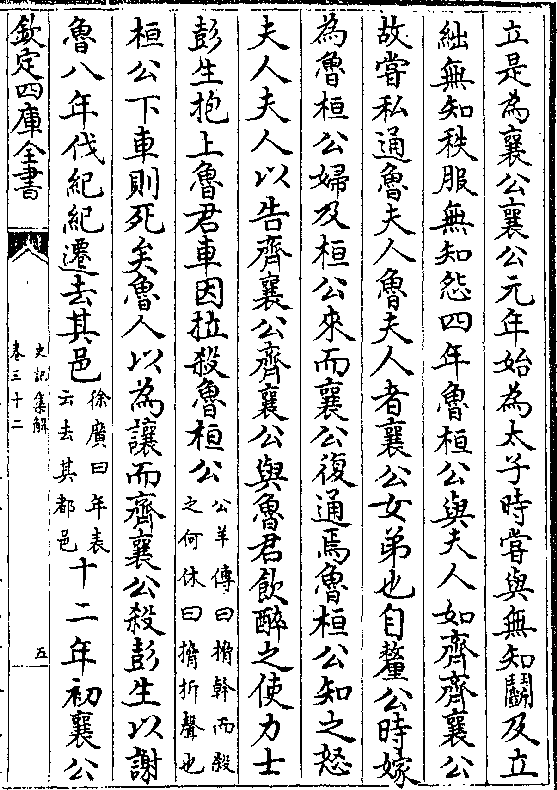 立是為襄公襄公元年始為太子時嘗與無知鬬及立
絀無知秩服無知怨四年魯桓公與夫人如齊齊襄公
故嘗私通魯夫人魯夫人者襄公女弟也自釐公時嫁
為魯桓公婦及桓公來而襄公復通焉魯桓公知之怒
夫人夫人以告齊襄公齊襄公與魯君飲醉之使力士
彭生抱上魯君車因拉殺魯桓公公羊傳曰搚幹而殺之何休曰搚折聲也
桓公下車則死矣魯人以為讓而齊襄公殺彭生以謝
魯八年伐紀紀遷去其邑徐廣曰年表云去其都邑十二年初襄公
欽定四庫全書
史記集解
卷三十二
五